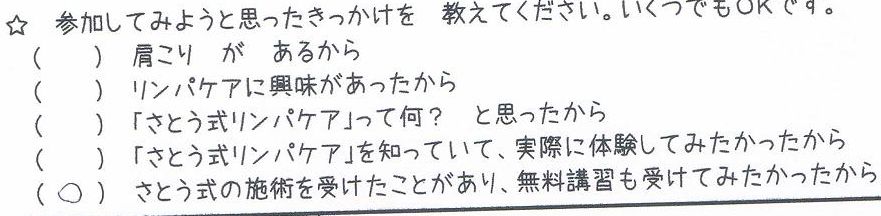 ☆ 参加してみようと思ったきっかけを 教えてください。いくつでもOKです。
(  ) 肩こり が あるから
(  ) リンパケアに興味があったから
(  ) 「さとう式リンパケア」って何? と思ったから
(  ) 「さとう式リンパケア」を知っていて、実際に体験してみたかったから
(○) さとう式の施術を受けたことがあり、無料講習も受けてみたかったから